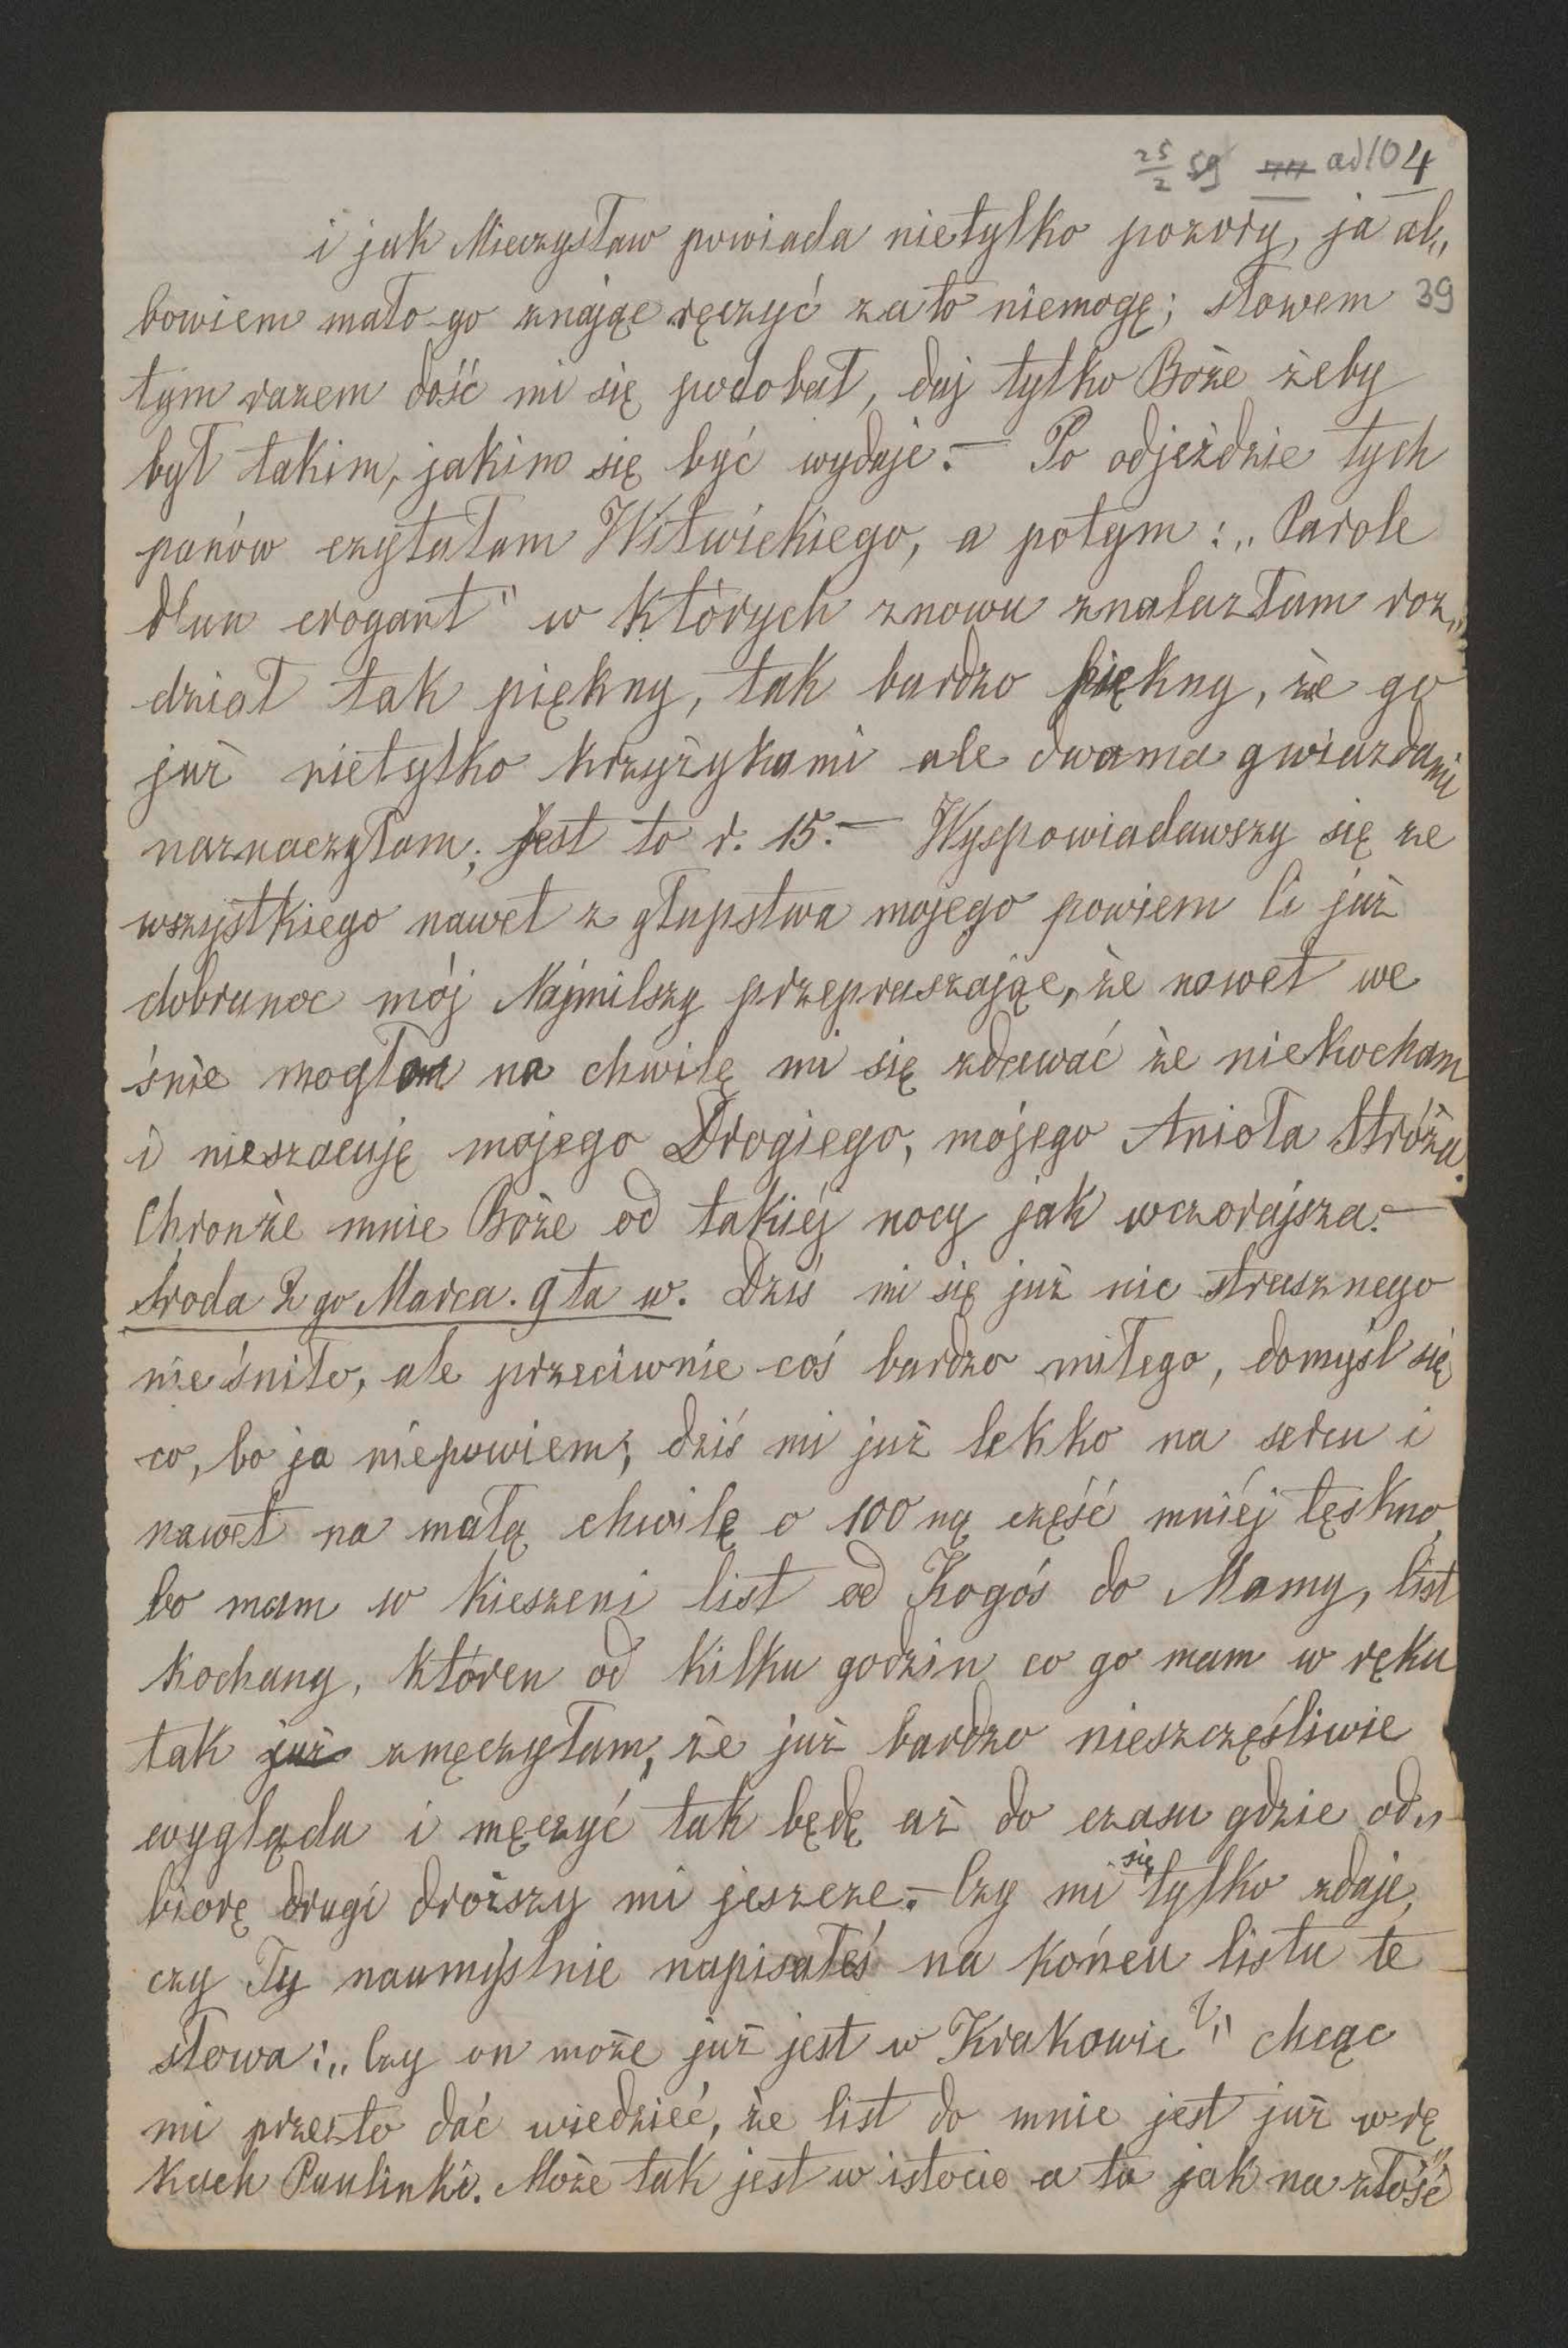 25/2 59 ad 104
i jak Mieczysław powiada nietylko pozory, ja al„
39
bowiem mało go znając ręczyć za to niemogę; słowem
tym razem dość mi się podobał, daj tylko Boże żeby
był takim, jakim się być wydaje.— Po odjeździe tych
panów czytałam Witwickiego, a potym: „Parole
d'un crogant" w których znowu znalazłam roz„
dział tak piękny, tak bardzo piękny, że go
już nietylko krzyżykami ale dwama gwiazdami
naznaczyłam; Jest to r. 15.— Wyspowiadawszy się ze
wszystkiego nawet z głupstwa mojego powiem Ci już
dobranoc mój Najmilszy przepraszając, że nawet we
śnie mogłam na chwilę mi się zdawać że niekocham
i nieszacuję mojego Drogiego, mojego Anioła Stróża.
Chrońże mnie Boże od takiéj nocy jak wczorajsza.—
Środa 2go Marca. 9ta w. Dziś mi się już nic strasznego
nie śniło, ale przeciwnie coś bardzo miłego, domyśl się
co, bo ja niepowiem; dziś mi już lekko na sercu i
nawet na małą chwilę o 100ną część mniéj tęskno,
bo mam w kieszeni list od Kogoś do Mamy, list
kochany, któren od kilku godzin co go mam w ręku
tak już zmęczyłam, że już bardzo nieszczęśliwie
wygląda i męczyć tak będę aż do czasu gdzie od„
biorę drugi droższy mi jeszcze.— Czy mi się tylko zdaje,
czy Ty naumyślnie napisałeś na końcu listu te
słowa: „Czy on może już jest w Krakowie?" chcąc
mi przezto dać wiedzieć, że list do mnie jest już w rę„
kach Paulinki. Może tak jest w istocie a ta jak na złość